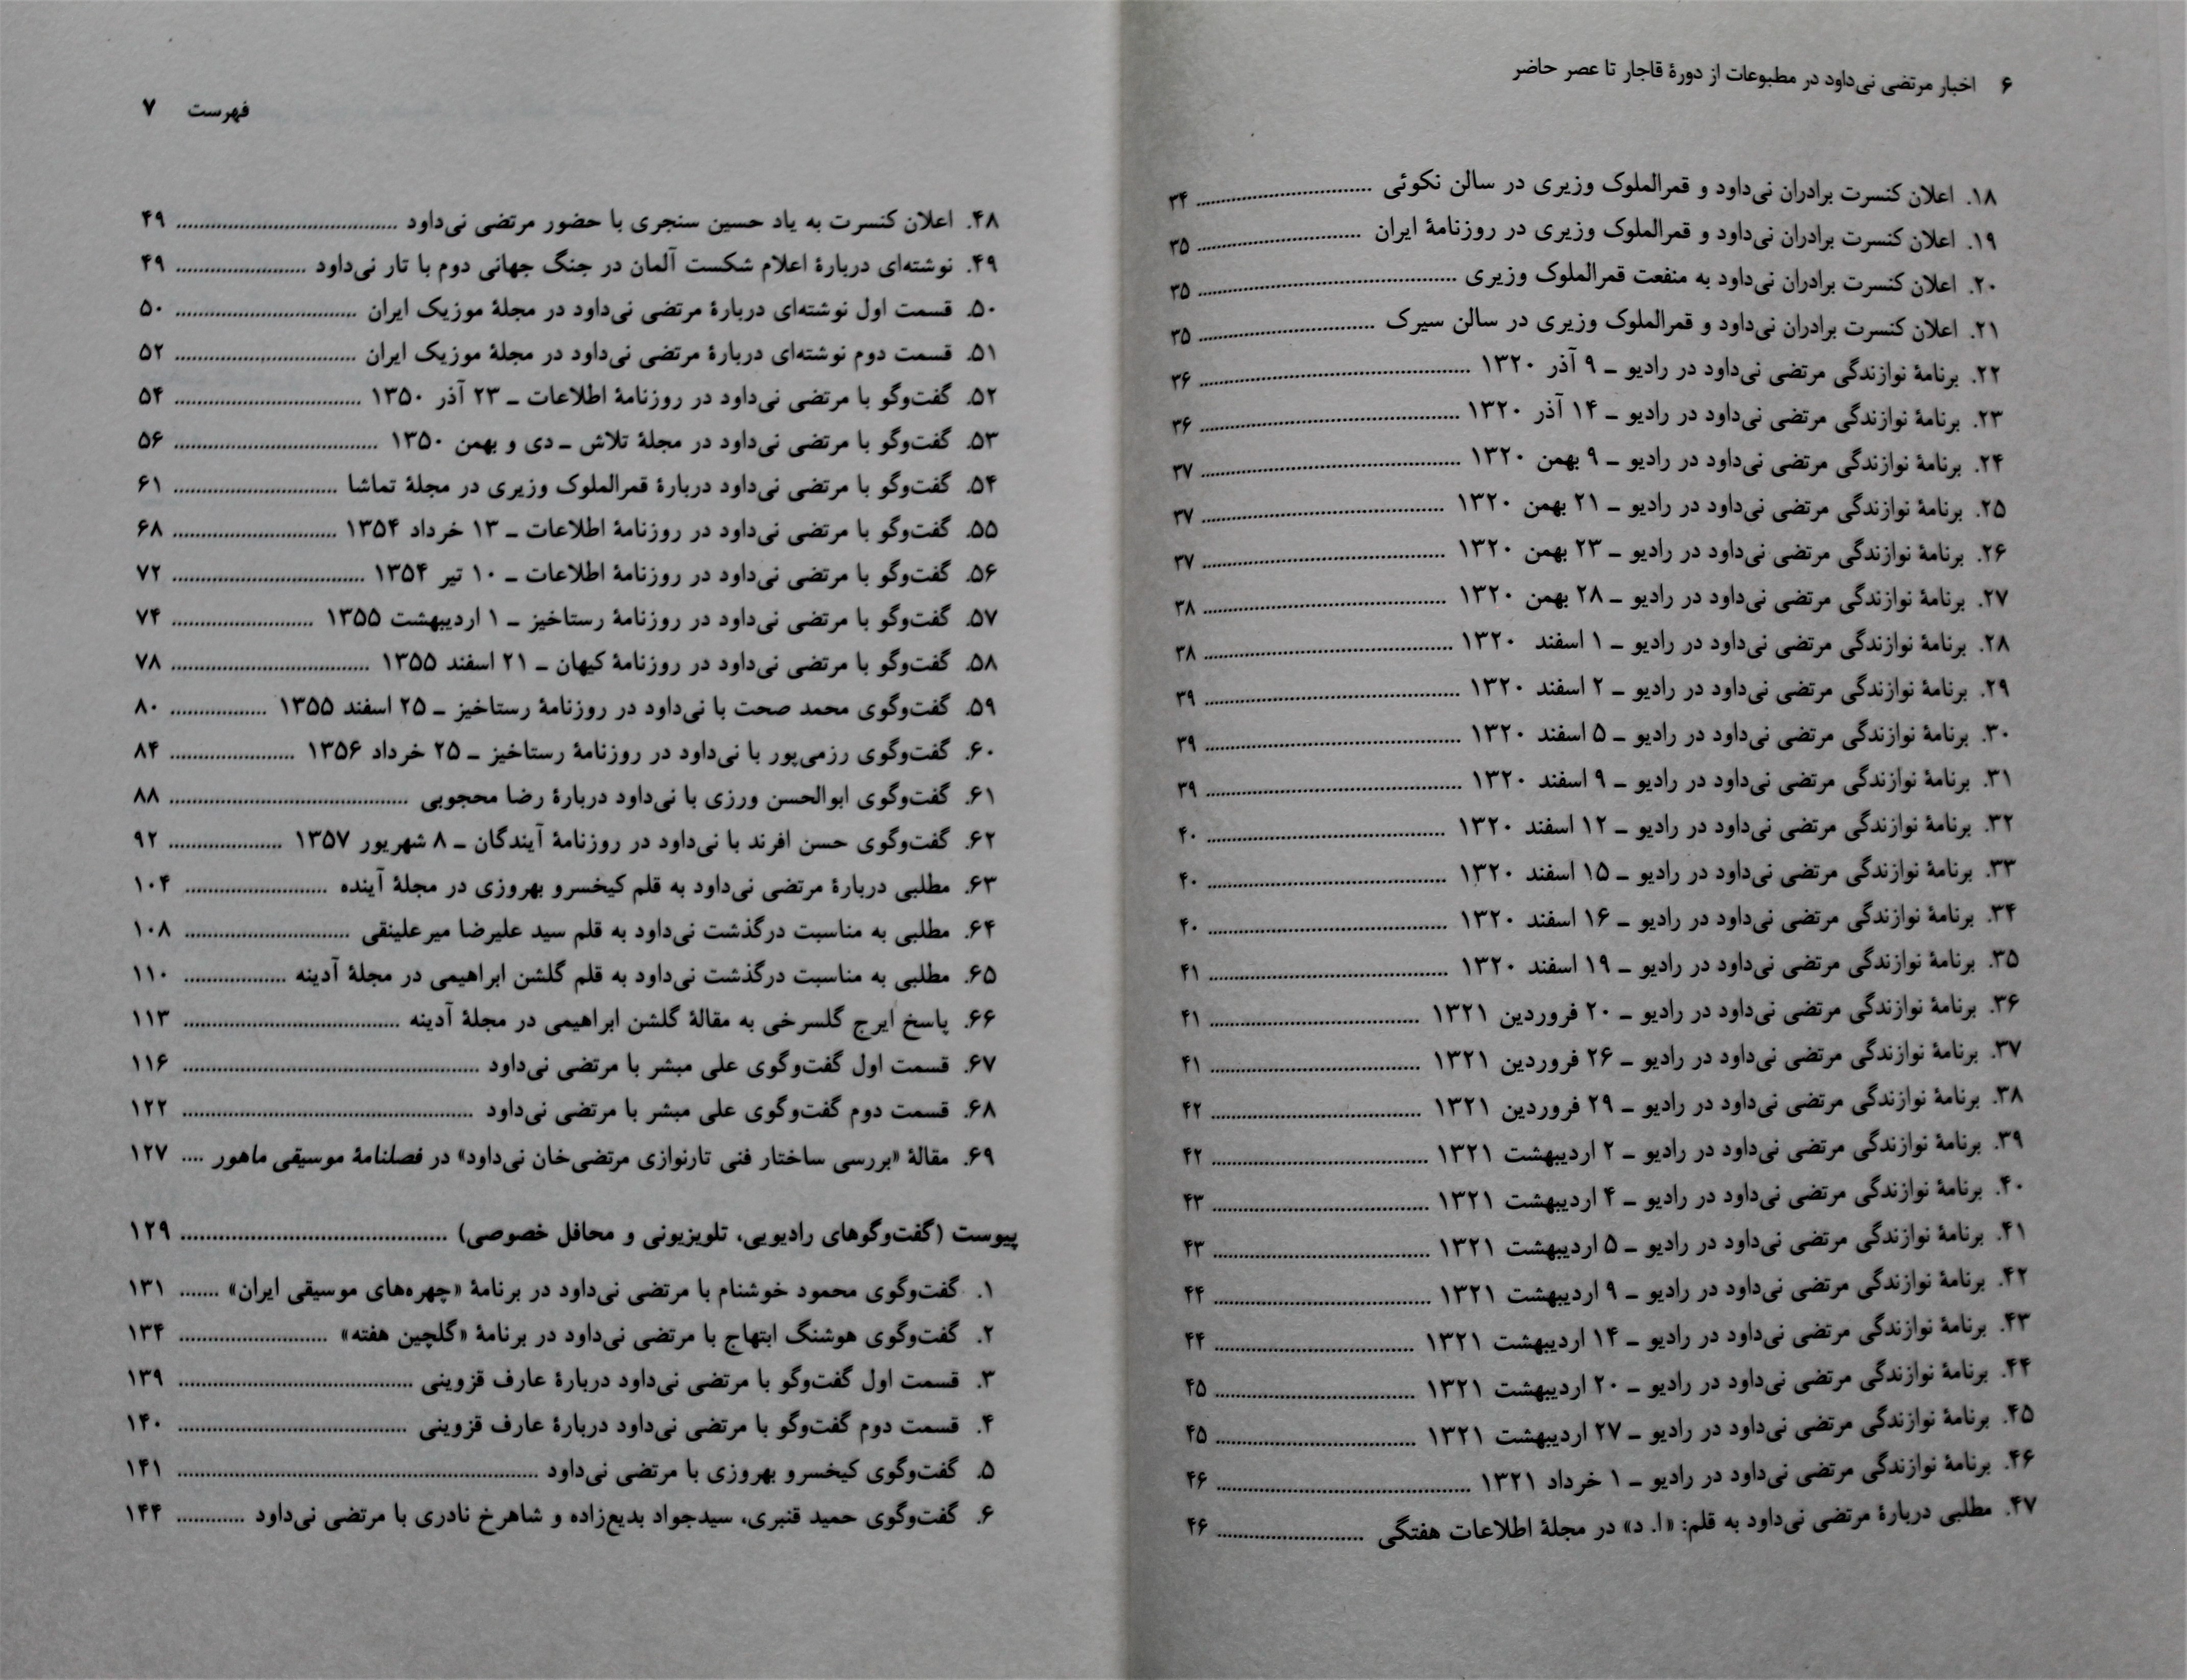 ۶ اخبار مرتضی نی‌داود در مطبوعات از دورهٔ قاجار تا عصر حاضر
۱۸. اعلان کنسرت برادران نی‌داود و قمرالملوک وزیری در سالن نکوئی ........ ۳۴
۱۹. اعلان کنسرت برادران نی‌داود و قمرالملوک وزیری در روزنامهٔ ایران ........ ۳۵
۲۰. اعلان کنسرت برادران نی‌داود به منفعت قمرالملوک وزیری ........ ۳۵
۲۱. اعلان کنسرت برادران نی‌داود و قمرالملوک وزیری در سالن سیرک ........ ۳۵
۲۲. برنامهٔ نوازندگی مرتضی نی‌داود در رادیو ـ ۹ آذر ۱۳۲۰ ........ ۳۶
۲۳. برنامهٔ نوازندگی مرتضی نی‌داود در رادیو ـ ۱۴ آذر ۱۳۲۰ ........ ۳۶
۲۴. برنامهٔ نوازندگی مرتضی نی‌داود در رادیو ـ ۹ بهمن ۱۳۲۰ ........ ۳۷
۲۵. برنامهٔ نوازندگی مرتضی نی‌داود در رادیو ـ ۲۱ بهمن ۱۳۲۰ ........ ۳۷
۲۶. برنامهٔ نوازندگی مرتضی نی‌داود در رادیو ـ ۲۳ بهمن ۱۳۲۰ ........ ۳۷
۲۷. برنامهٔ نوازندگی مرتضی نی‌داود در رادیو ـ ۲۸ بهمن ۱۳۲۰ ........ ۳۸
۲۸. برنامهٔ نوازندگی مرتضی نی‌داود در رادیو ـ ۱ اسفند ۱۳۲۰ ........ ۳۸
۲۹. برنامهٔ نوازندگی مرتضی نی‌داود در رادیو ـ ۲ اسفند ۱۳۲۰ ........ ۳۹
۳۰. برنامهٔ نوازندگی مرتضی نی‌داود در رادیو ـ ۵ اسفند ۱۳۲۰ ........ ۳۹
۳۱. برنامهٔ نوازندگی مرتضی نی‌داود در رادیو ـ ۹ اسفند ۱۳۲۰ ........ ۳۹
۳۲. برنامهٔ نوازندگی مرتضی نی‌داود در رادیو ـ ۱۲ اسفند ۱۳۲۰ ........ ۴۰
۳۳. برنامهٔ نوازندگی مرتضی نی‌داود در رادیو ـ ۱۵ اسفند ۱۳۲۰ ........ ۴۰
۳۴. برنامهٔ نوازندگی مرتضی نی‌داود در رادیو ـ ۱۶ اسفند ۱۳۲۰ ........ ۴۰
۳۵. برنامهٔ نوازندگی مرتضی نی‌داود در رادیو ـ ۱۹ اسفند ۱۳۲۰ ........ ۴۱
۳۶. برنامهٔ نوازندگی مرتضی نی‌داود در رادیو ـ ۲۰ فروردین ۱۳۲۱ ........ ۴۱
۳۷. برنامهٔ نوازندگی مرتضی نی‌داود در رادیو ـ ۲۶ فروردین ۱۳۲۱ ........ ۴۱
۳۸. برنامهٔ نوازندگی مرتضی نی‌داود در رادیو ـ ۲۹ فروردین ۱۳۲۱ ........ ۴۲
۳۹. برنامهٔ نوازندگی مرتضی نی‌داود در رادیو ـ ۲ اردیبهشت ۱۳۲۱ ........ ۴۲
۴۰. برنامهٔ نوازندگی مرتضی نی‌داود در رادیو ـ ۴ اردیبهشت ۱۳۲۱ ........ ۴۳
۴۱. برنامهٔ نوازندگی مرتضی نی‌داود در رادیو ـ ۵ اردیبهشت ۱۳۲۱ ........ ۴۳
۴۲. برنامهٔ نوازندگی مرتضی نی‌داود در رادیو ـ ۹ اردیبهشت ۱۳۲۱ ........ ۴۴
۴۳. برنامهٔ نوازندگی مرتضی نی‌داود در رادیو ـ ۱۴ اردیبهشت ۱۳۲۱ ........ ۴۴
۴۴. برنامهٔ نوازندگی مرتضی نی‌داود در رادیو ـ ۲۰ اردیبهشت ۱۳۲۱ ........ ۴۵
۴۵. برنامهٔ نوازندگی مرتضی نی‌داود در رادیو ـ ۲۷ اردیبهشت ۱۳۲۱ ........ ۴۵
۴۶. برنامهٔ نوازندگی مرتضی نی‌داود در رادیو ـ ۱ خرداد ۱۳۲۱ ........ ۴۶
۴۷. مطلبی دربارهٔ مرتضی نی‌داود به قلم: «ا. د» در مجلهٔ اطلاعات هفتگی ........ ۴۶
فهرست ۷
۴۸. اعلان کنسرت به یاد حسین سنجری با حضور مرتضی نی‌داود ........ ۴۹
۴۹. نوشته‌ای دربارهٔ اعلام شکست آلمان در جنگ جهانی دوم با تار نی‌داود ........ ۴۹
۵۰. قسمت اول نوشته‌ای دربارهٔ مرتضی نی‌داود در مجلهٔ موزیک ایران ........ ۵۰
۵۱. قسمت دوم نوشته‌ای دربارهٔ مرتضی نی‌داود در مجلهٔ موزیک ایران ........ ۵۲
۵۲. گفت‌وگو با مرتضی نی‌داود در روزنامهٔ اطلاعات ـ ۲۳ آذر ۱۳۵۰ ........ ۵۴
۵۳. گفت‌وگو با مرتضی نی‌داود در مجلهٔ تلاش ـ دی و بهمن ۱۳۵۰ ........ ۵۶
۵۴. گفت‌وگو با مرتضی نی‌داود دربارهٔ قمرالملوک وزیری در مجلهٔ تماشا ........ ۶۱
۵۵. گفت‌وگو با مرتضی نی‌داود در روزنامهٔ اطلاعات ـ ۱۳ خرداد ۱۳۵۴ ........ ۶۸
۵۶. گفت‌وگو با مرتضی نی‌داود در روزنامهٔ اطلاعات ـ ۱۰ تیر ۱۳۵۴ ........ ۷۲
۵۷. گفت‌وگو با مرتضی نی‌داود در روزنامهٔ رستاخیز ـ ۱ اردیبهشت ۱۳۵۵ ........ ۷۴
۵۸. گفت‌وگو با مرتضی نی‌داود در روزنامهٔ کیهان ـ ۲۱ اسفند ۱۳۵۵ ........ ۷۸
۵۹. گفت‌وگوی محمد صحت با نی‌داود در روزنامهٔ رستاخیز ـ ۲۵ اسفند ۱۳۵۵ ........ ۸۰
۶۰. گفت‌وگوی رزمی‌پور با نی‌داود در روزنامهٔ رستاخیز ـ ۲۵ خرداد ۱۳۵۶ ........ ۸۴
۶۱. گفت‌وگوی ابوالحسن ورزی با نی‌داود دربارهٔ رضا محجوبی ........ ۸۸
۶۲. گفت‌وگوی حسن افرند با نی‌داود در روزنامهٔ آیندگان ـ ۸ شهریور ۱۳۵۷ ........ ۹۲
۶۳. مطلبی دربارهٔ مرتضی نی‌داود به قلم کیخسرو بهروزی در مجلهٔ آینده ........ ۱۰۴
۶۴. مطلبی به مناسبت درگذشت نی‌داود به قلم سید علیرضا میرعلینقی ........ ۱۰۸
۶۵. مطلبی به مناسبت درگذشت نی‌داود به قلم گلشن ابراهیمی در مجلهٔ آدینه ........ ۱۱۰
۶۶. پاسخ ایرج گلسرخی به مقالهٔ گلشن ابراهیمی در مجلهٔ آدینه ........ ۱۱۳
۶۷. قسمت اول گفت‌وگوی علی مبشر با مرتضی نی‌داود ........ ۱۱۶
۶۸. قسمت دوم گفت‌وگوی علی مبشر با مرتضی نی‌داود ........ ۱۲۲
۶۹. مقالهٔ «بررسی ساختار فنی تارنوازی مرتضی‌خان نی‌داود» در فصلنامهٔ موسیقی ماهور .... ۱۲۷
پیوست (گفت‌وگوهای رادیویی، تلویزیونی و محافل خصوصی) ........ ۱۲۹
۱. گفت‌وگوی محمود خوشنام با مرتضی نی‌داود در برنامهٔ «چهره‌های موسیقی ایران» ....... ۱۳۱
۲. گفت‌وگوی هوشنگ ابتهاج با مرتضی نی‌داود در برنامهٔ «گلچین هفته» ........ ۱۳۴
۳. قسمت اول گفت‌وگو با مرتضی نی‌داود دربارهٔ عارف قزوینی ........ ۱۳۹
۴. قسمت دوم گفت‌وگو با مرتضی نی‌داود دربارهٔ عارف قزوینی ........ ۱۴۰
۵. گفت‌وگوی کیخسرو بهروزی با مرتضی نی‌داود ........ ۱۴۱
۶. گفت‌وگوی حمید قنبری، سیدجواد بدیع‌زاده و شاهرخ نادری با مرتضی نی‌داود ........ ۱۴۴